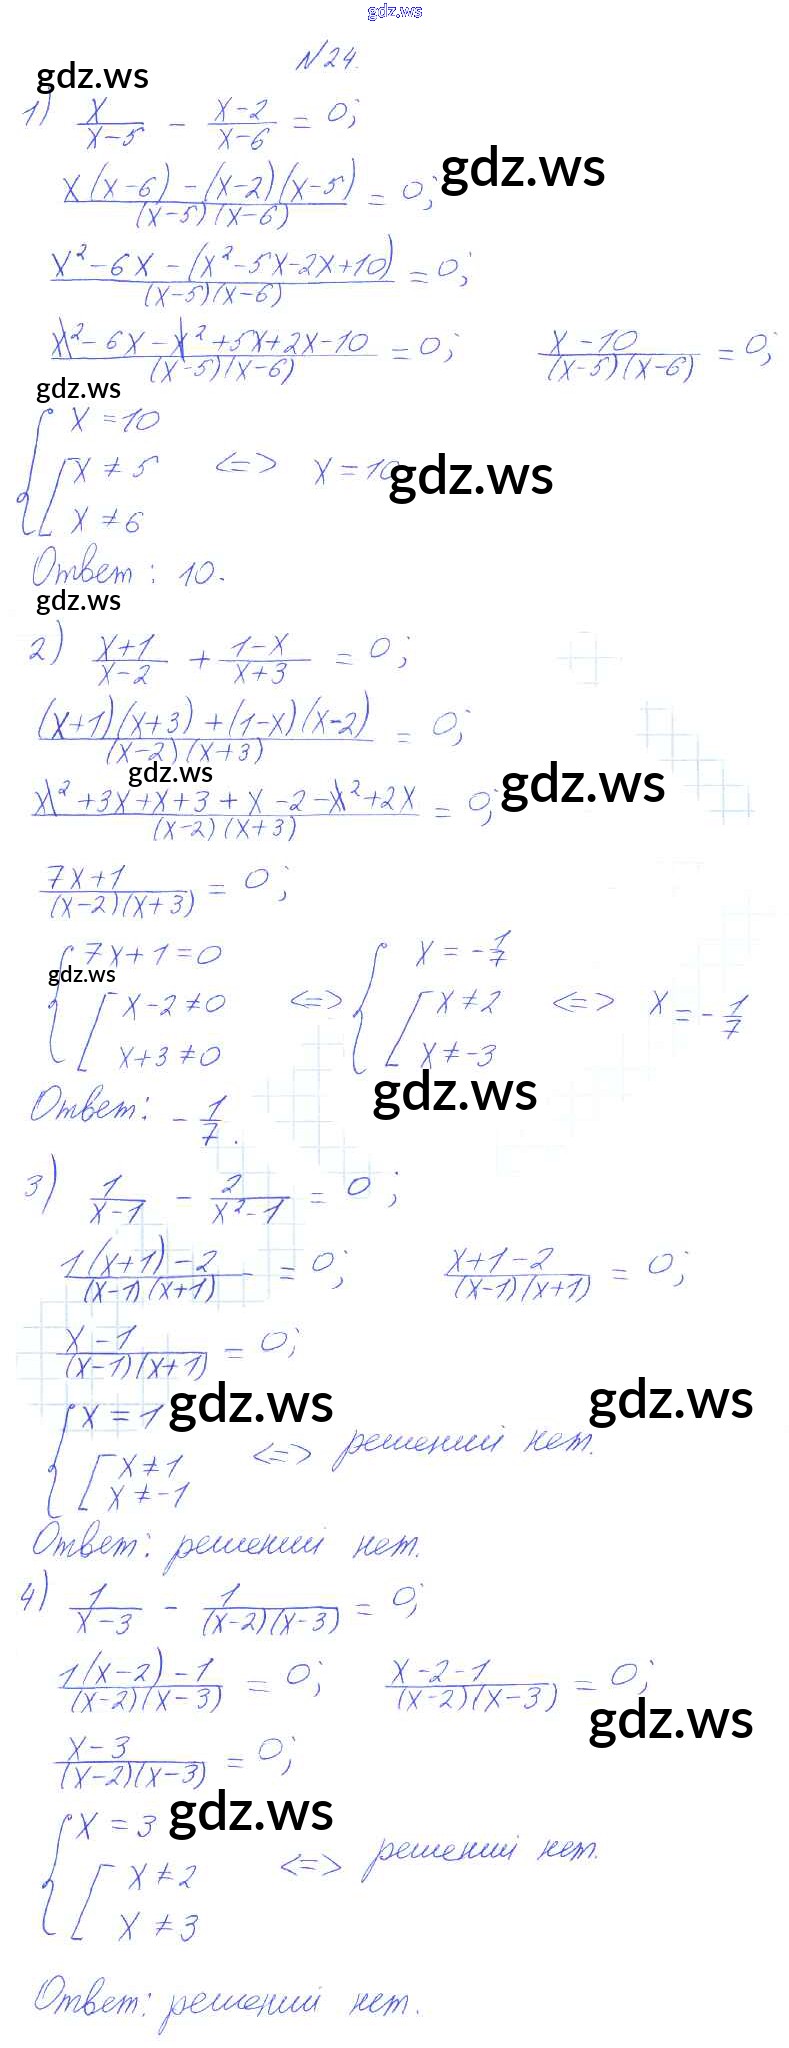 gdz.ws
N 24.
gdz.ws
1) x/(x-5) - (x-2)/(x-6) = 0;
gdz.ws
(x(x-6) - (x-2)(x-5))/((x-5)(x-6)) = 0;
(x²-6x-(x²-5x-2x+10))/((x-5)(x-6)) = 0;
(x²-6x-x²+5x+2x-10)/((x-5)(x-6)) = 0; (x-10)/((x-5)(x-6)) = 0;
gdz.ws
{ x = 10
[ x ≠ 5 <=> x = 10
gdz.ws
x ≠ 6
Ответ: 10.
gdz.ws
2) (x+1)/(x-2) + (1-x)/(x+3) = 0;
((x+1)(x+3)+(1-x)(x-2))/((x-2)(x+3)) = 0;
gdz.ws
gdz.ws
(x²+3x+x+3+x-2-x²+2x)/((x-2)(x+3)) = 0;
(7x+1)/((x-2)(x+3)) = 0;
{ 7x+1=0 { x = -1/7
gdz.ws
[ x-2≠0 <=> [ x≠2 <=> x = -1/7
x+3≠0 x≠-3
gdz.ws
Ответ: -1/7.
3) 1/(x-1) - 2/(x²-1) = 0;
(1(x+1)-2)/((x-1)(x+1)) = 0; (x+1-2)/((x-1)(x+1)) = 0;
(x-1)/((x-1)(x+1)) = 0;
gdz.ws
gdz.ws
{ x = 1
[ x≠1 <=> решений нет.
x≠-1
Ответ: решений нет.
4) 1/(x-3) - 1/((x-2)(x-3)) = 0;
(1(x-2)-1)/((x-2)(x-3)) = 0; (x-2-1)/((x-2)(x-3)) = 0;
gdz.ws
(x-3)/((x-2)(x-3)) = 0;
gdz.ws
{ x = 3
[ x≠2 <=> решений нет.
x ≠ 3
Ответ: решений нет.